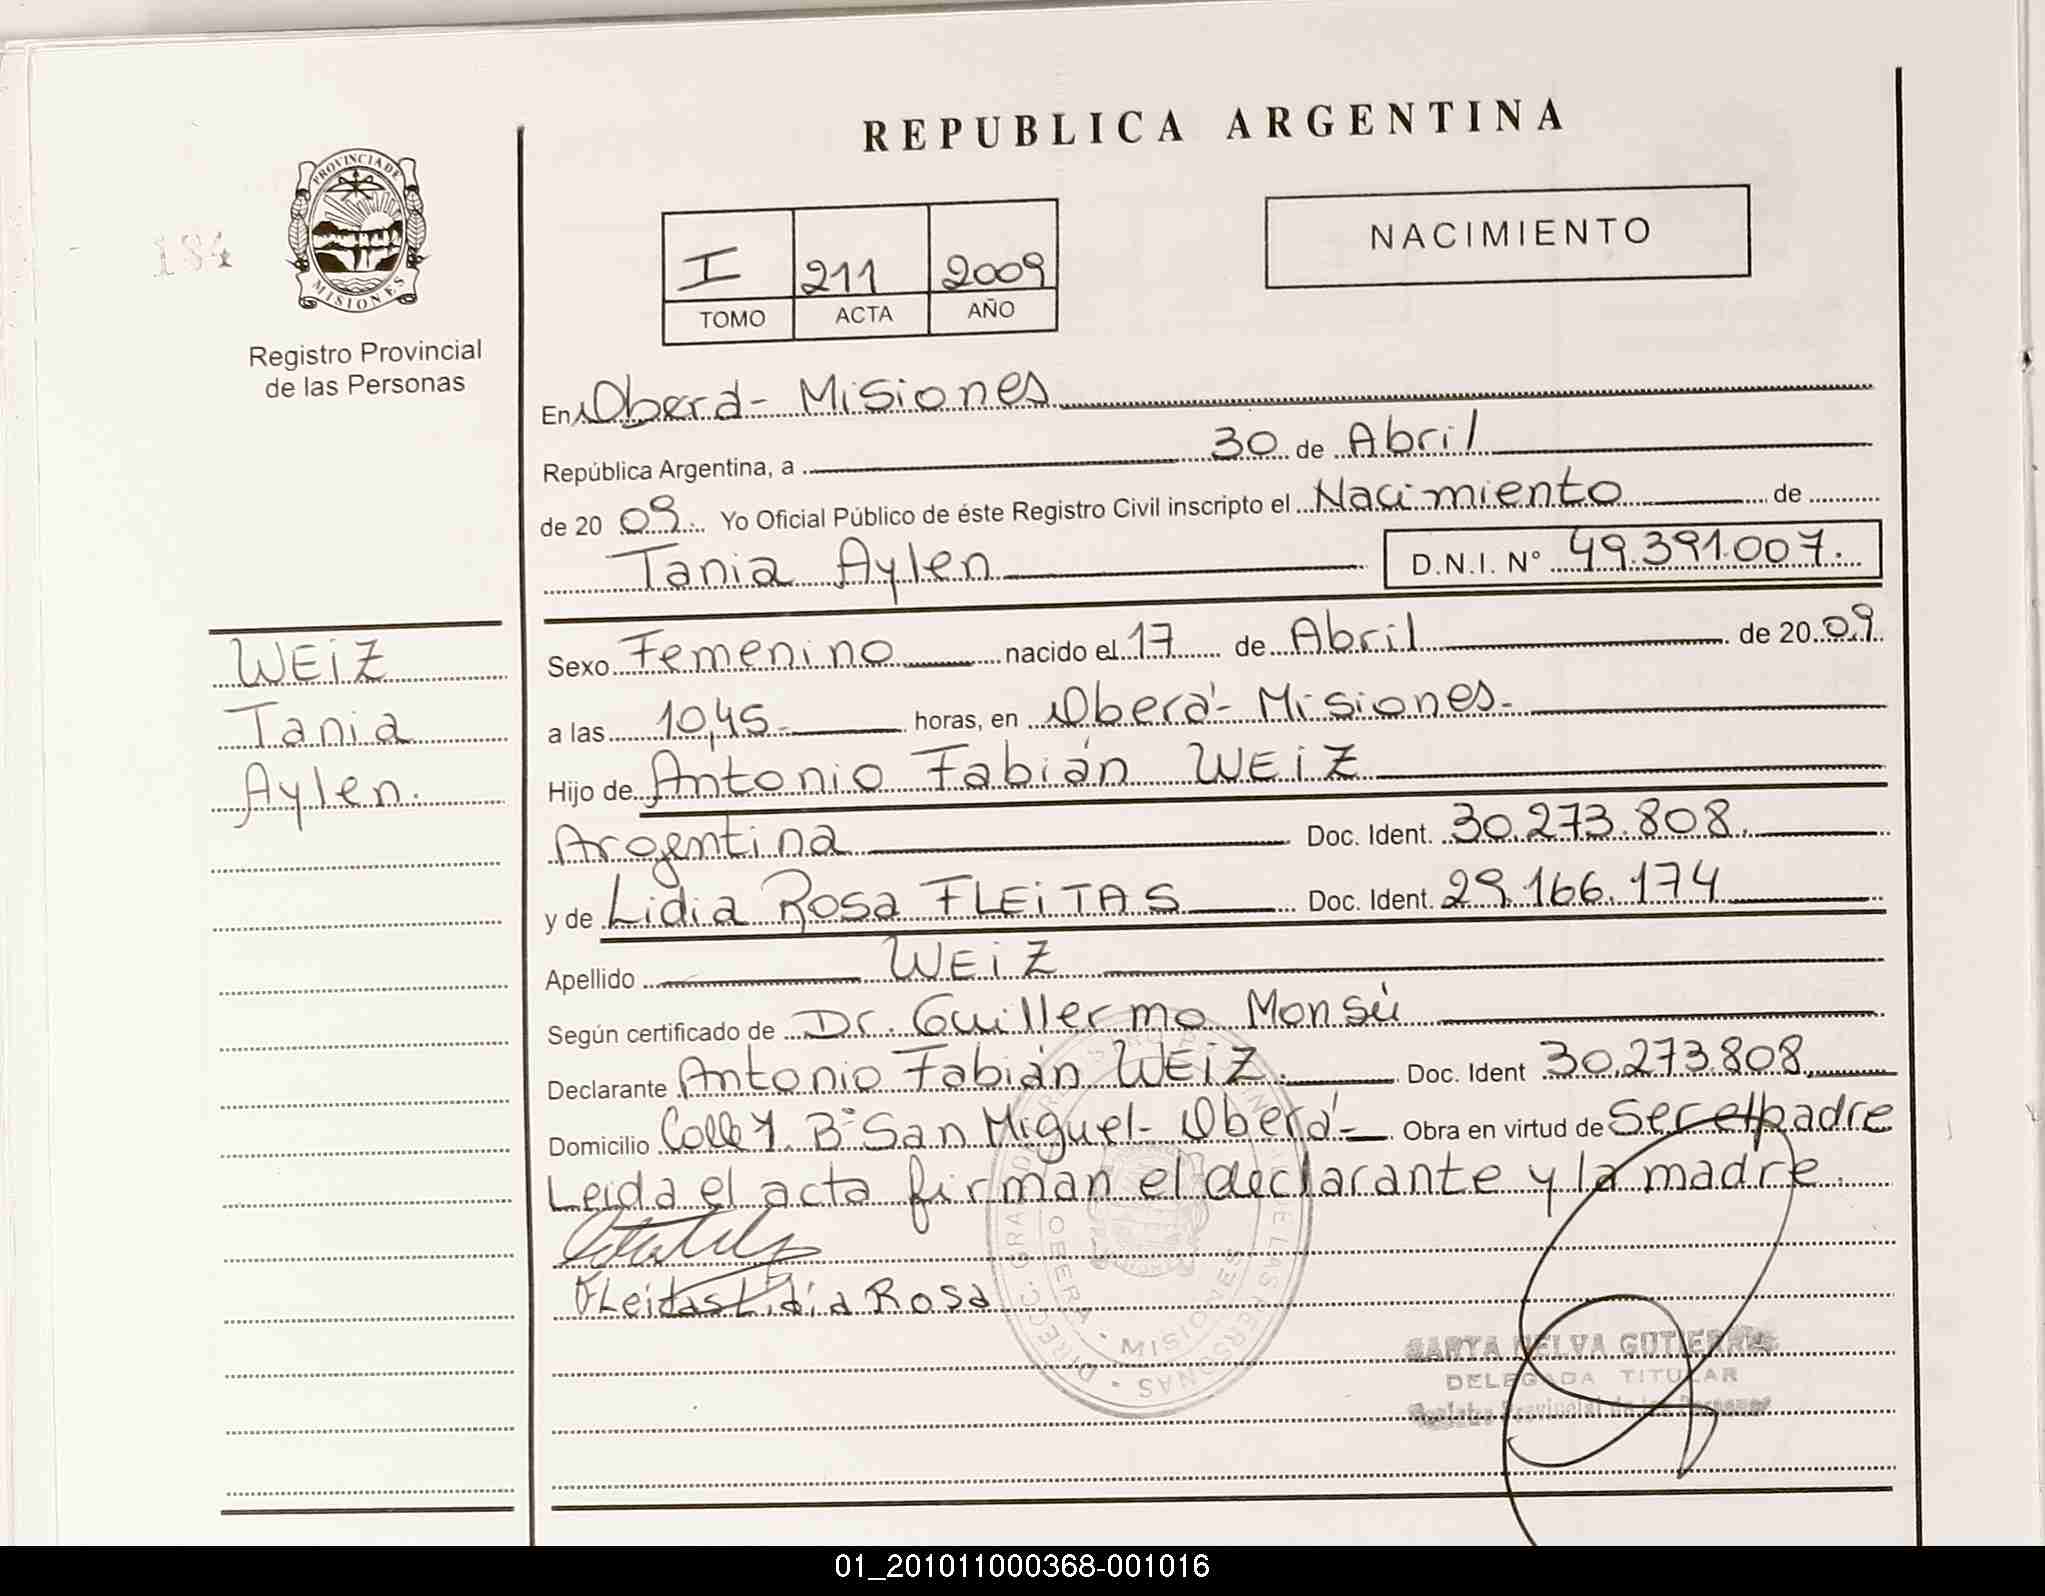 REPUBLICA ARGENTINA
184
PROVINCIA DE
MISIONES
Registro Provincial
de las Personas
I 211 2009
TOMO ACTA AÑO
NACIMIENTO
En Oberá - Misiones
República Argentina, a 30 de Abril
de 20 09 Yo Oficial Público de éste Registro Civil inscripto el Nacimiento de
Tania Aylen D.N.I. N° 49.391.007.
WEIZ
Tania
Aylen.
Sexo Femenino nacido el 17 de Abril de 20 09
a las 10,45 horas, en Oberá - Misiones
Hijo de Antonio Fabián WEIZ
Argentina Doc. Ident. 30.273.808.
y de Lidia Rosa FLEITAS Doc. Ident. 29.166.174
Apellido WEIZ
Según certificado de Dr. Guillermo Monsú
Declarante Antonio Fabián WEIZ. Doc. Ident 30.273.808
Domicilio Calle Y. B° San Miguel - Oberá - Obra en virtud de Ser el padre
Leida el acta firman el declarante y la madre.
FLeitas Lidia Rosa
OBERA - MISIONES
GUTIERREZ
DELEGADA TITULAR
Registro Provincial de las Personas
01_201011000368-001016